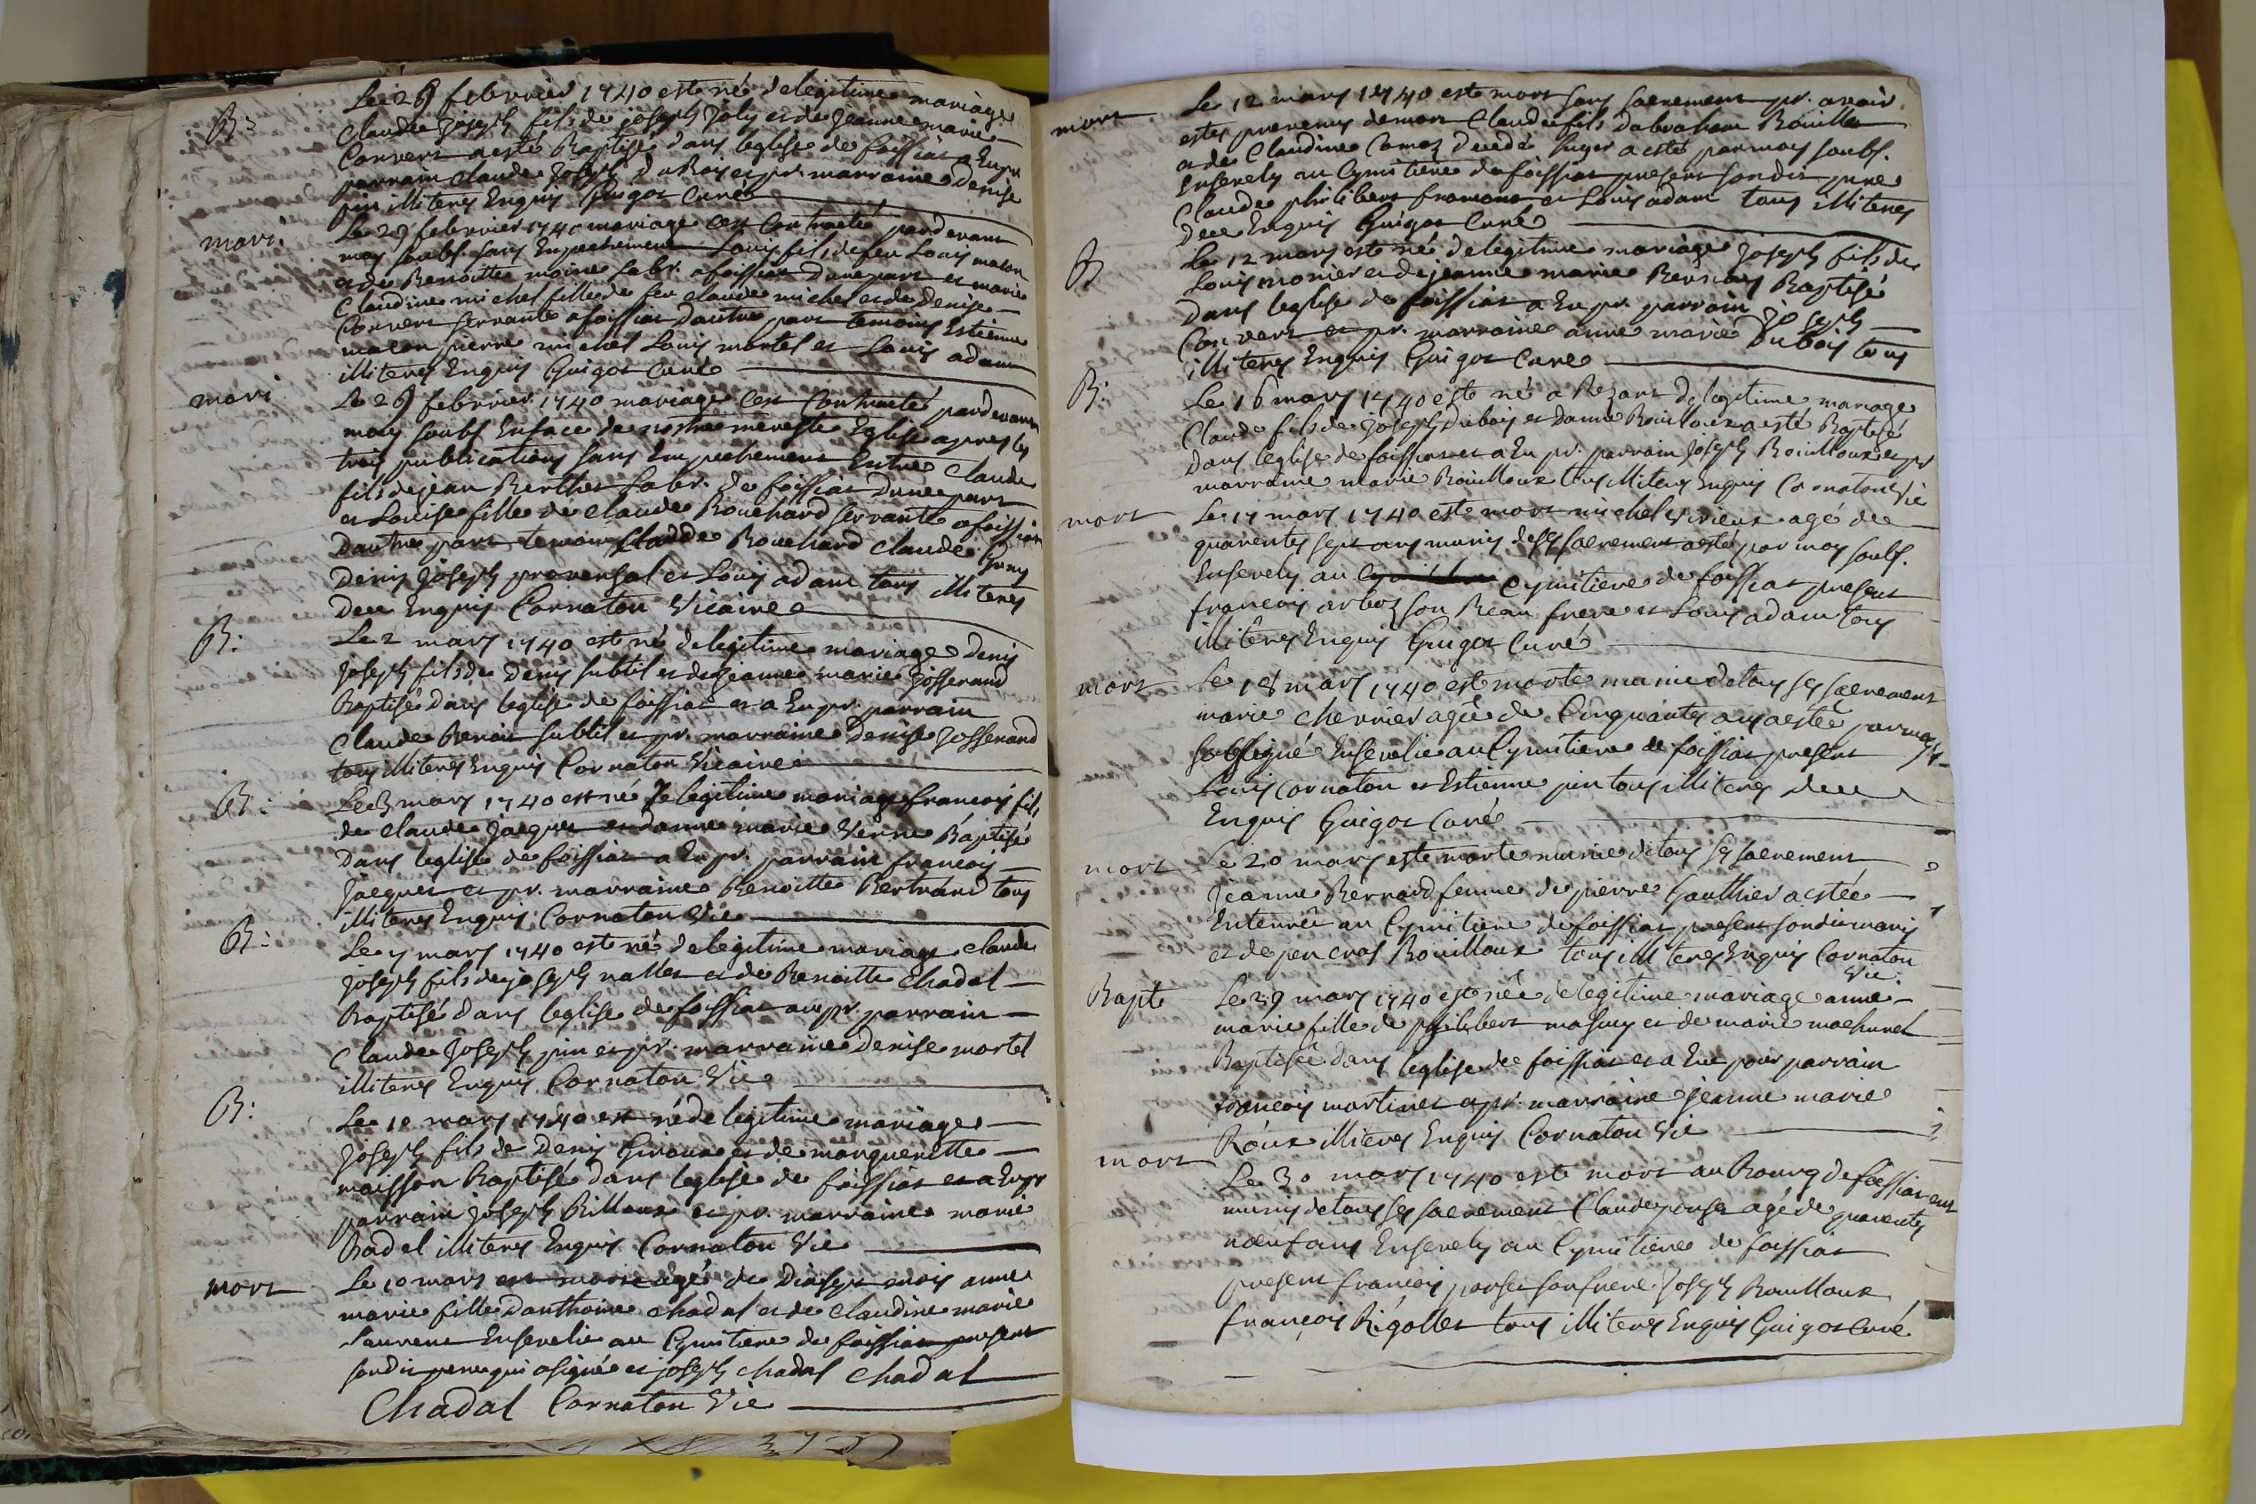 B:
Le 29 febvrier 1740 est né de legitime mariage
Claude Joseph fils de joseph Joly et de jeanne marie
Convert a esté Baptisé dans leglise de foissiat a Eu pr
parrain claude Joseph Du Bois et pr. marraine Denise
pin illiteres Enquis Guigot Curé
mari.
Le 29 febvrier 1740 mariage cest Contracté pardevant
moy soubs. sans Empechement Louis fils de feu Louis macon
et de Benoitte moine labr. a foissiat dune part et marie
Claudine michel fille de feu claude michel et de Denise
Convert servante a foissiat dautre part temoins Estienne
macon pierre michel Louis mortel et Louis adam
illiteres Enquis Guigot curé
mari
Le 29 febvrier 1740 mariage cest Contracté pardevant
moy soubs. Enface de nostre mere ste Eglise apres les
trois publications sans Empechement Entre Claude
fils de jean Berthet labr. de foissiat Dune part
et Louise fille de claude Bouchard servante a foissiat
Dautre part temoin Claude Bouchard claude
Denis Joseph provensal et Louis adam tous illiteres
Dece Enquis Cornaton Vicaire
B:
Le 2 mars 1740 est né de legitime mariage Denis
Joseph fils de Denis subtil et de jeanne marie Josserand
Baptisé dans leglise de foissiat et a Eu pr. parrain
Claude Benoit subtil et pr. marraine Denise Josserand
tous illiteres Enquis Cornaton Vicaire
B:
Le 3 mars 1740 est né De legitime mariage francois fils
de claude Jacquet et danne marie Verne Baptisé
Dans leglise de foissiat a Eu pr. parrain francois
Jacquet et pr. marraine Benoitte Bertrand tous
illiteres Enquis Cornaton Vic
B:
Le 7 mars 1740 est né de legitime mariage claude
Joseph fils de joseph nallet et de Benoitte Chadal
Baptisé dans leglise de foissiat a eu pr. parrain
Claude Joseph pin et pr. marraine Denise mortel
illiteres Enquis Cornaton Vic
B:
Le 10 mars 1740 est né de legitime mariage
Joseph fils de Denis Giroux et de marguerittte
maisson Baptisé dans leglise de foissiat et a Eu pr
parrain Joseph Rilloux et pr. marraine marie
Badel illiteres Enquis Cornaton Vic
mort
Le 10 mars est morte agée de Dix sept mois anne
marie fille Danthoine chadal et de claudine marie
Laurent Ensevelie au Cymitiere de foissiat present
sondit pere qui a signé et joseph chadal chadal
Chadal Cornaton Vic
mort
Le 12 mars 1740 est mort sans sacrement pr. avoir
estés prevenus de mort Claude fils dabraham Rouiller
et de Claudine Comoz a esté par moy soubs.
Ensevely au Cymitiere de foissiat present sondit pere
Claude philibert framont et Louis adam tous illiteres
Dece Enquis Guigot Curé
B
Le 12 mars est né de legitime mariage Joseph fils de
Louis monier et de jeanne marie Baptisé
Dans leglise de foissiat a Eu pr. parrain Joseph
Convert et pr. marraine anne marie Dubois tous
illiteres Enquis Guigot Curé
B:
Le 16 mars 1740 est né a De legitime mariage
Claude fils de Joseph Dubois et Danne Rouilloux a esté Baptisé
dans leglise de foissiat et a Eu pr. parrain Joseph Rouilloux et pr
marraine marie Rouilloux tous illiteres Enquis Cornaton Vic
mort
Le 17 mars 1740 est mort michel Vivieux agé de
quarente sept ans munis de ses sacrement a esté par moy soubs.
Ensevely au Cymitiere de foissiat present
francois arboz son Beau frere et Louis adam tous
illiteres Enquis Guigot Curé
mort
Le 18 mars 1740 est morte munie de tous ses sacrement
marie cherrier agée de Cinquante ans a estée par moy
soussigné Ensevelie au Cymitiere de foissiat present
Louis Cornaton et Estienne pin tous illiteres dece
Enquis Guigot Curé
mort
Le 20 mars est morte munie de tous ses sacrement
Jeanne Bernard femme de pierre Gauthier a estée
Enterrée au Cymitiere de foissiat present sondit maris
et de pencras Rouilloux tous illiteres Enquis Cornaton
Vic
Bapte
Le 29 mars 1740 est née de legitime mariage anne
marie fille de philibert masuy et de marie machurel
Baptisée dans leglise de foissiat et a Eue pour parrain
francois martinet et pr. marraine Jeanne marie
Roux illiteres Enquis Cornaton Vic
mort
Le 30 mars 1740 est mort au Bourg de foissiat
munis de tous ses sacrement Claude ponset agé de quarente
noeuf ans Ensevely au Cymitiere de foissiat
present francois ponset son frere Joseph Rouilloux
françois Rigollet tous illiteres Enquis Guigot Curé